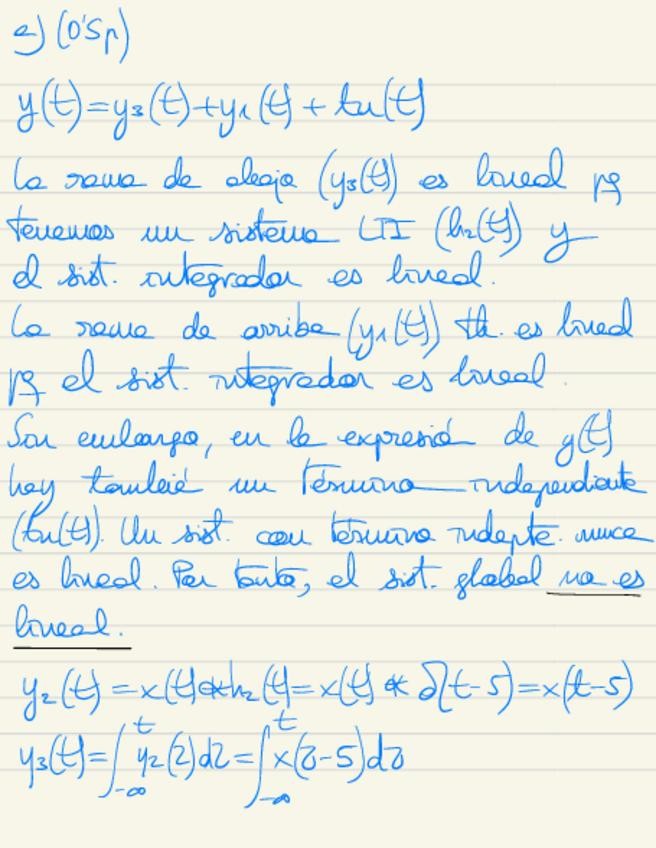 a) (0'5p)
y(t)=y₃(t)+y₁(t)+tu(t)
La rama de abajo (y₃(t)) es lineal pq
tenemos un sistema LTI (h₂(t)) y
el sist. integrador es lineal.
La rama de arriba (y₁(t)) tb. es lineal
pq el sist. integrador es lineal.
Sin embargo, en la expresión de y(t)
hay también un término independiente
(tu(t)). Un sist. con término indepte. nunca
es lineal. Por tanto, el sist. global no es
lineal.
y₂(t)=x(t)*h₂(t)=x(t)*δ(t-5)=x(t-5)
y₃(t)=∫₋∞ᵗ y₂(τ)dτ=∫₋∞ᵗ x(τ-5)dτ